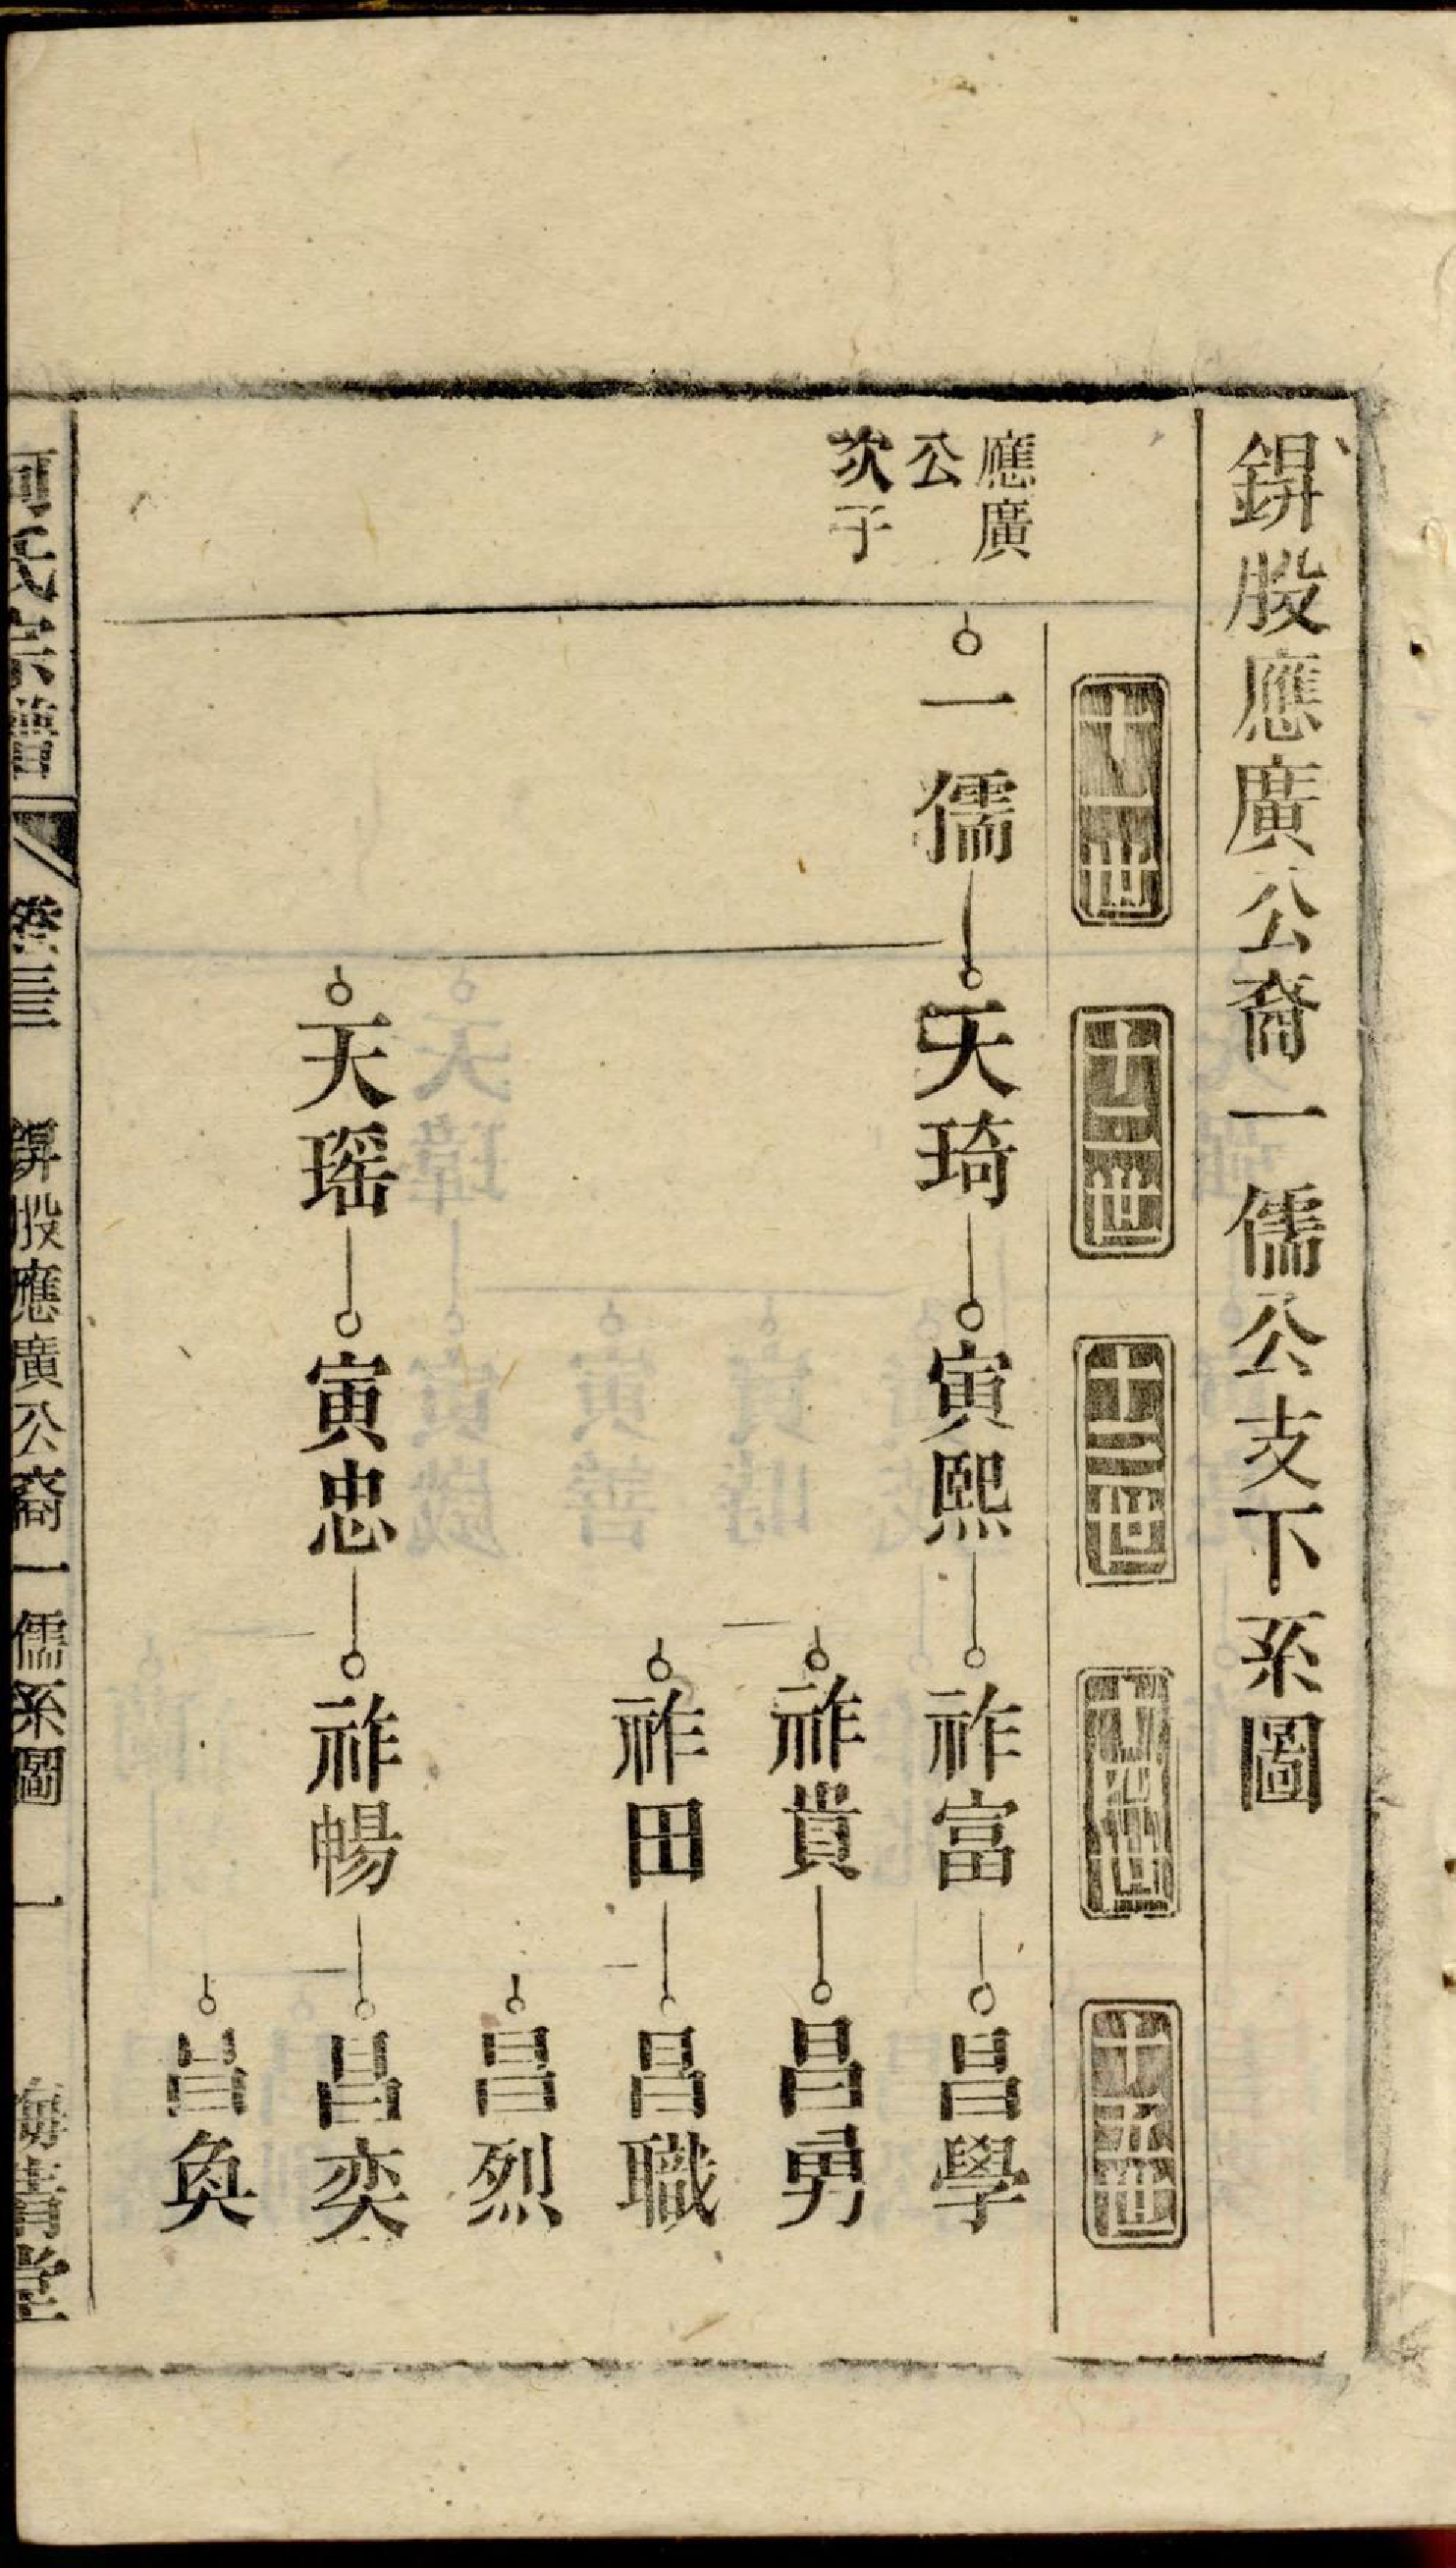 鋅股應廣公裔一儒公支下系圖
十一世
十二世
十三世
十四世
十五世
應廣
公
次子
一儒
天琦
寅熙
祚富
昌學
祚貴
昌勇
祚田
昌職
昌烈
天瑶
寅忠
祚暢
昌奕
昌奐
氏宗譜
卷三
股應廣公裔一儒系圖
一
青堂